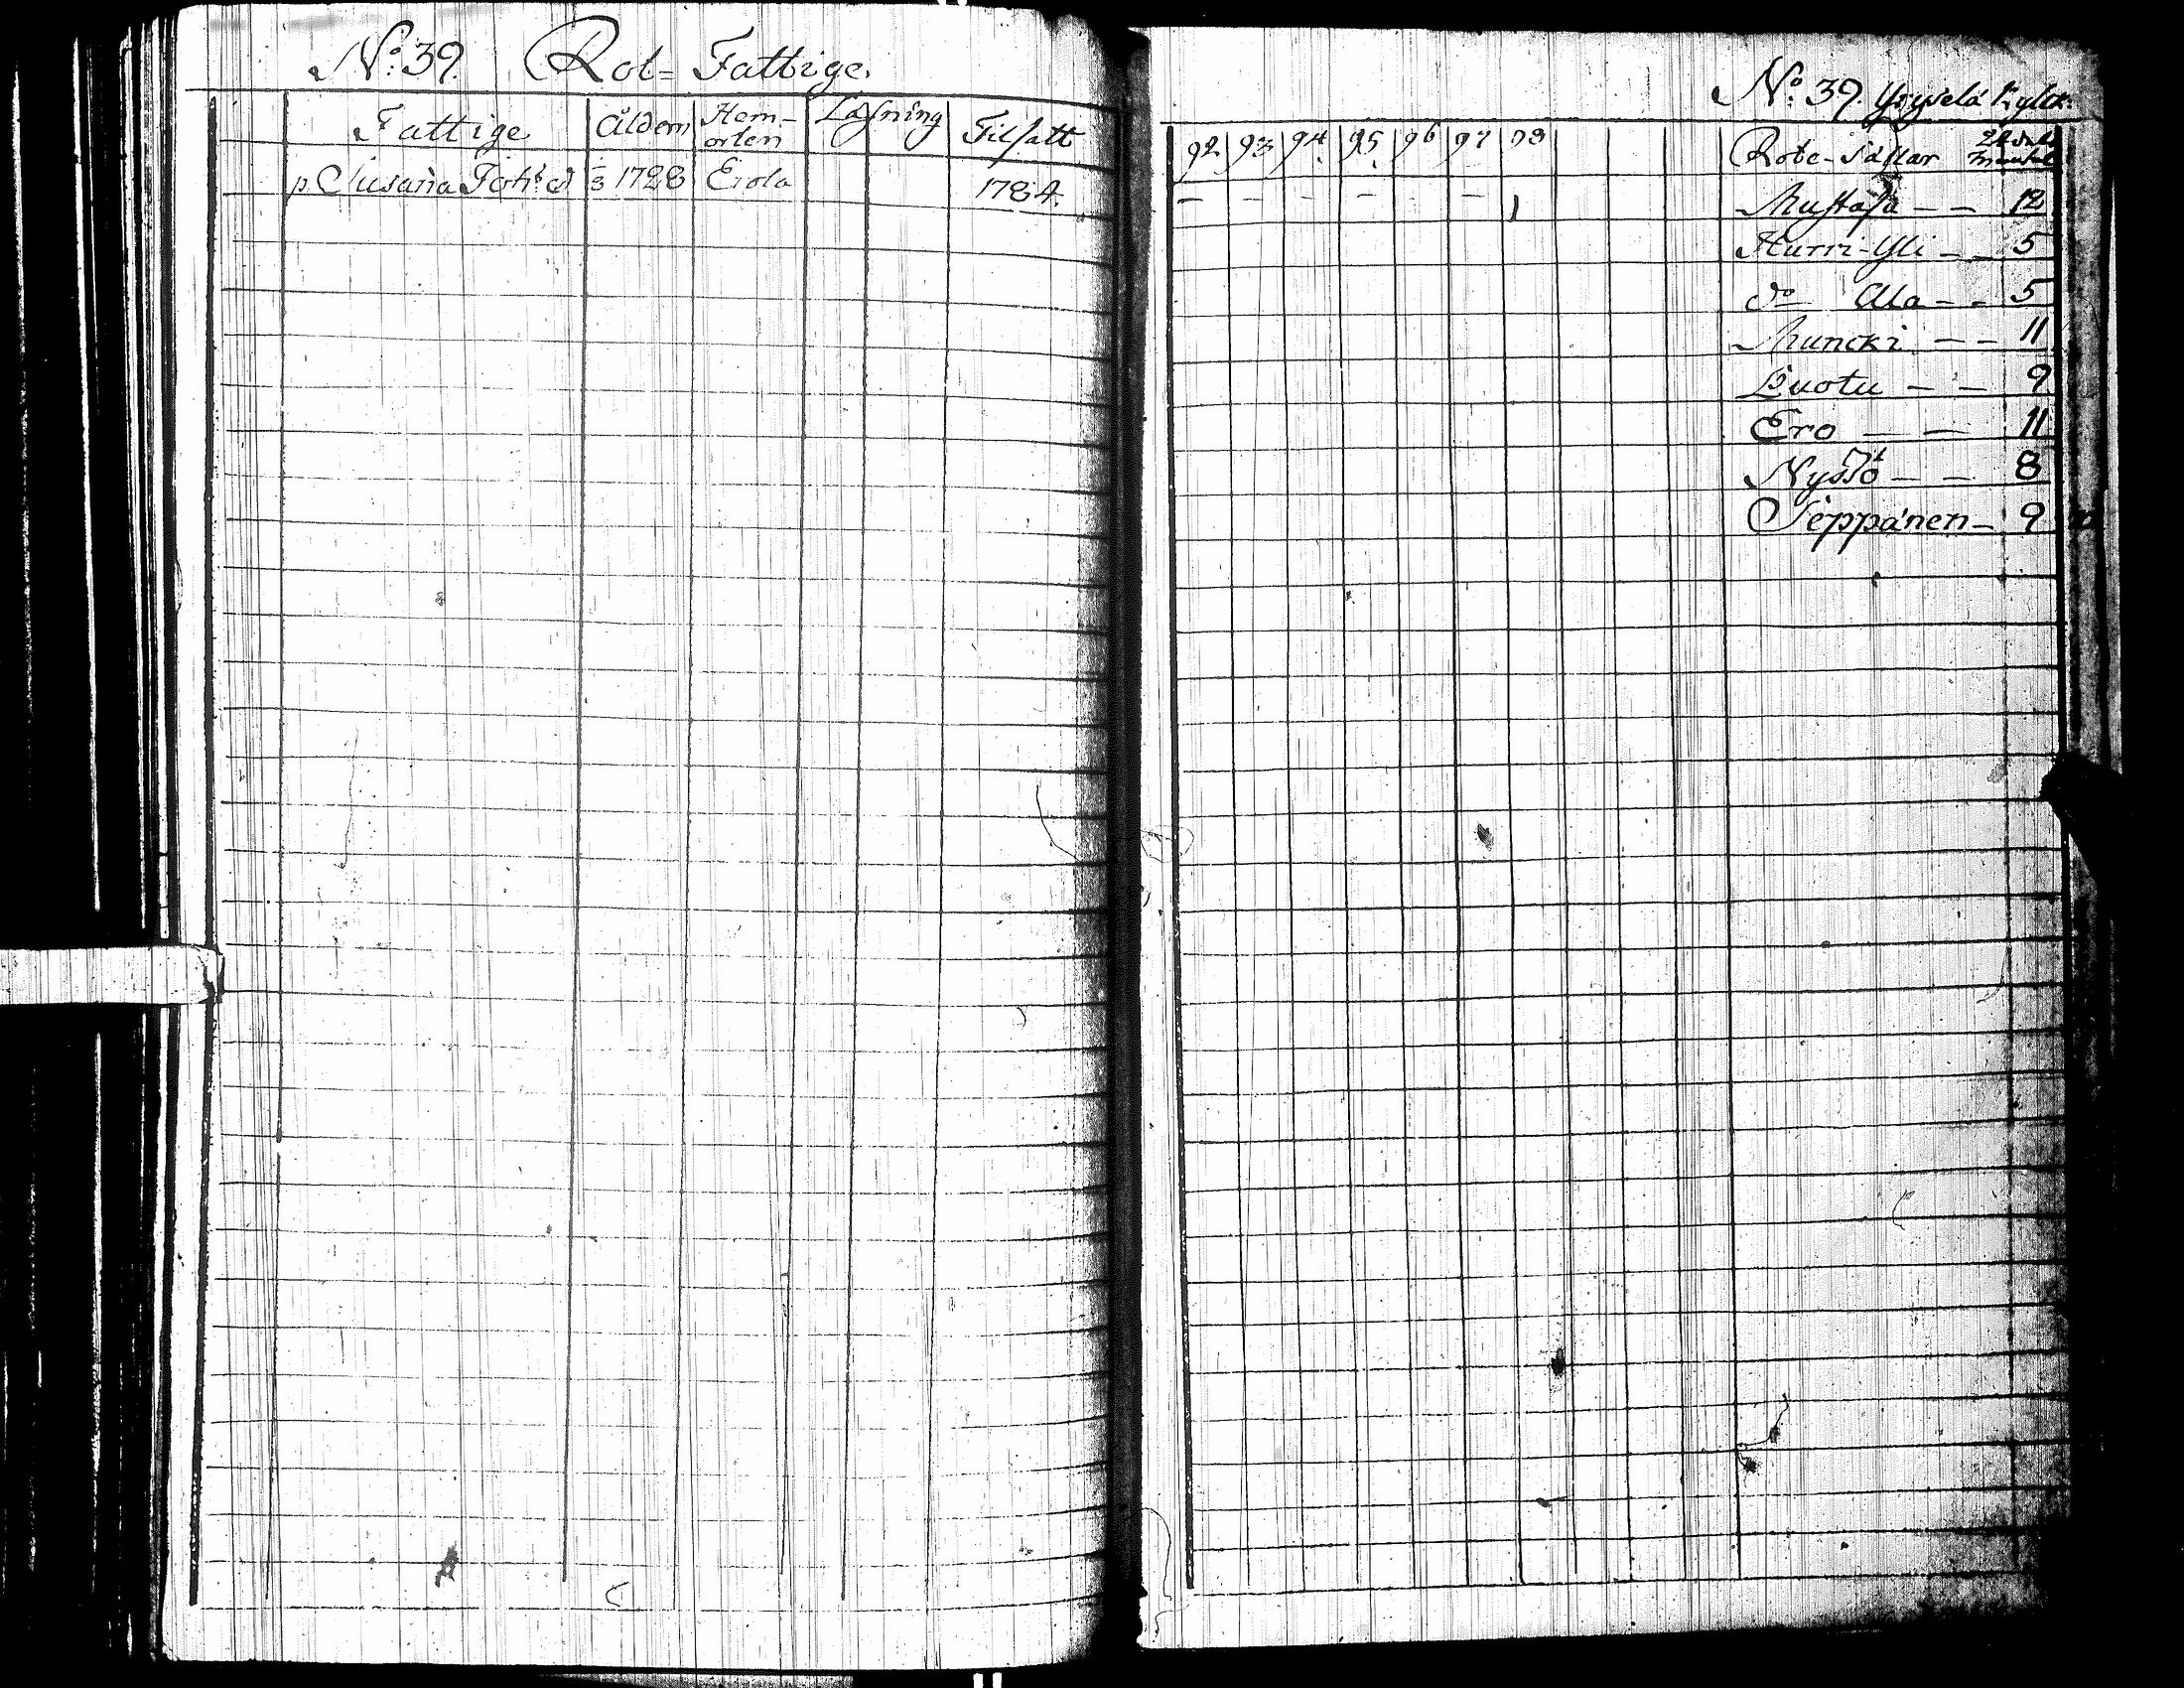 No: 39. Rot= Fattige.
Fattige Åldern Hem-orten Läsning Tilsatt
p. Susana Joh:s d 3 1728 Erola 1784.
No: 39.
92 93 94 95 96 97 98 Rote-Sällar
Mustaja — — 12
Hurri-Yli — — 5
do Ala — - 5
Muncki — — 11
Luotu — — 9
Ero — — 11
Nyssö — — 8
Seppänen — 9